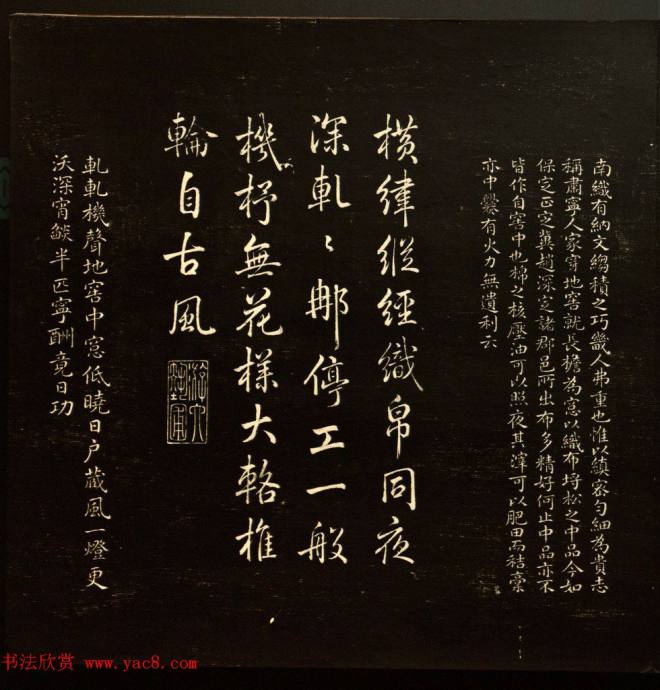 南織有納文緫積之巧畿人弗重也惟以縝密匀細為貴志
稱肅寧人家穿地窖就長檐為窓以織布埒松之中品今如
保定正定冀趙深定諸郡邑所出布多精好何止中品亦不
皆作自窖中也棉之核壓油可以照夜其滓可以肥田而秸藁
亦中爨有火力無遺利云
横緯縱經織帛同夜
深軋〻那停工一般
機杼無花様大輅椎
輪自古風
軋軋機聲地窖中窓低曉日户藏風一燈更
沃深宵燄半匹寧酬竟日功
书法欣赏 www.yac8.com